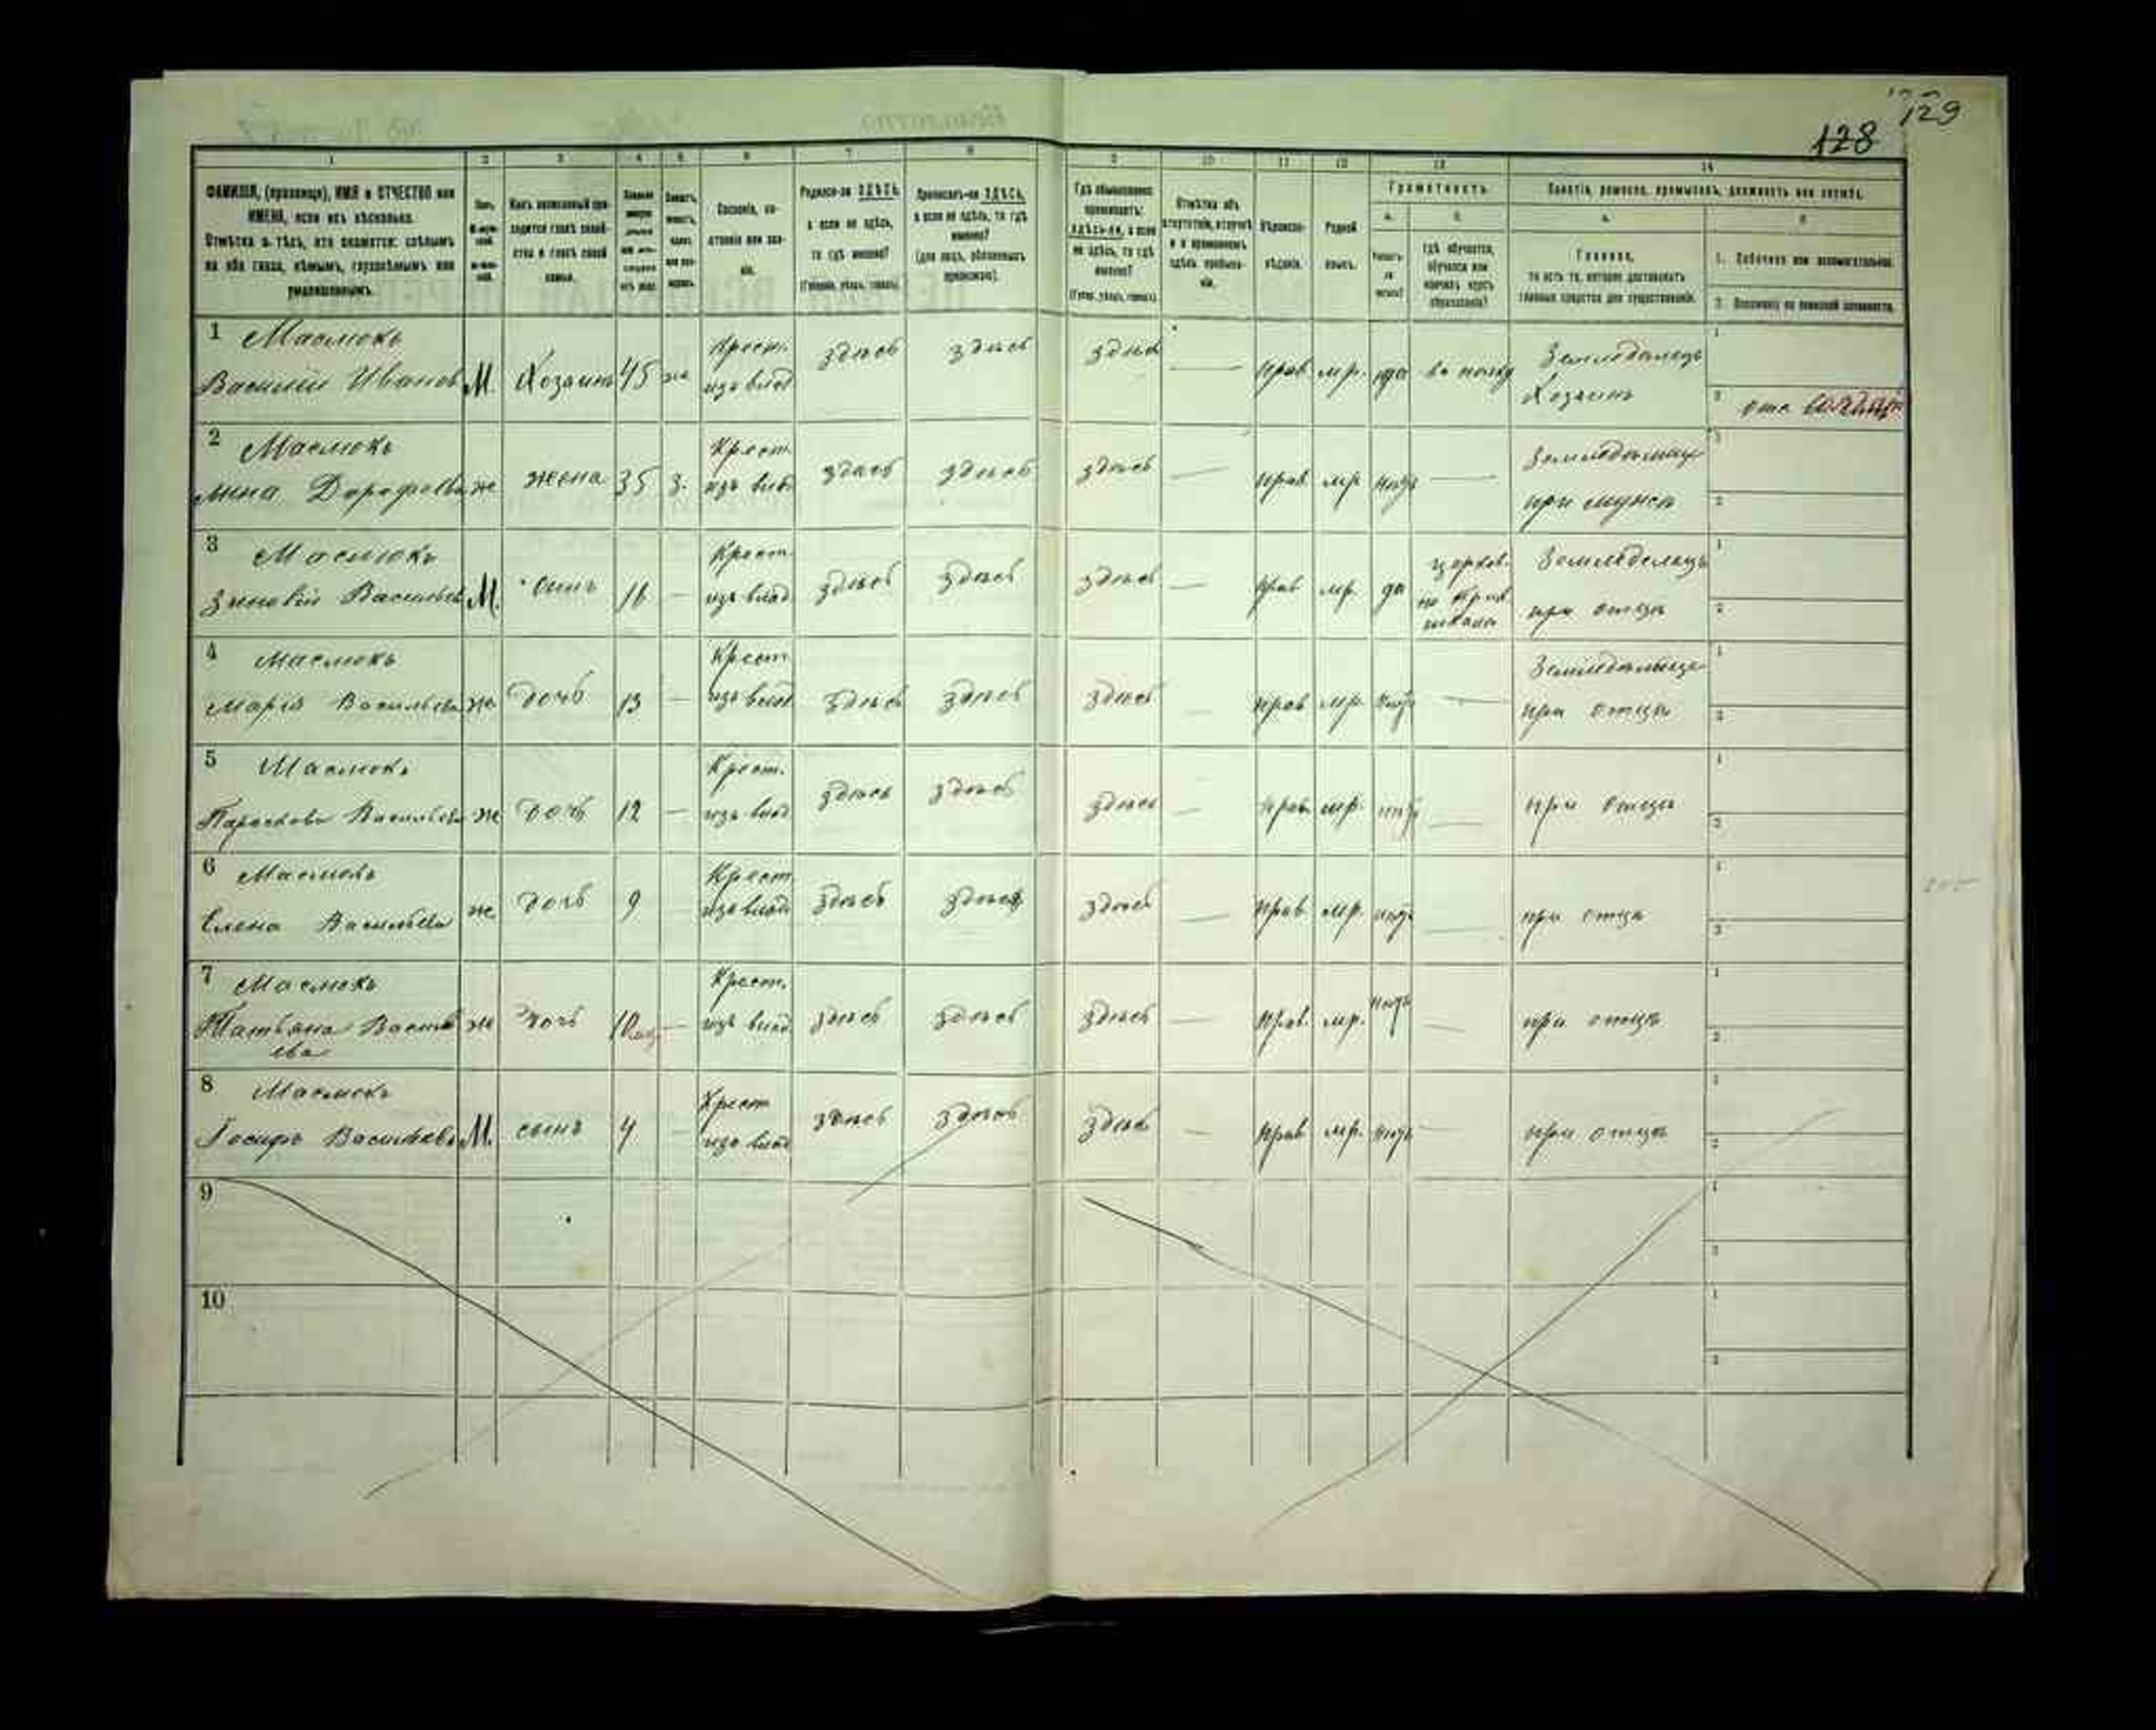 128 129
1 2 3 4 5 6 7 8 9 10 11 12 13 14
ФАМИЛІЯ, (прозвище), ИМЯ и ОТЧЕСТВО или
ИМЕНА, если ихъ нѣсколько.
Отмѣтка о тѣхъ, кто окажется: слѣпымъ
на оба глаза, нѣмымъ, глухонѣмымъ или
умалишеннымъ.
Полъ.
Какъ записанный при-
ходится главѣ хозяй-
ства и главѣ своей
семьи.
Сословіе, со-
стояніе или зва-
ніе.
Родился-ли ЗДѢСЬ,
а если не здѣсь,
то гдѣ именно?
(Губернія, уѣздъ, городъ).
Приписанъ-ли ЗДѢСЬ,
а если не здѣсь, то гдѣ
именно?
(для лицъ, обязанныхъ
припискою).
Гдѣ обыкновенно
проживаетъ:
здѣсь-ли, а если
не здѣсь, то гдѣ
именно?
(Губер. уѣздъ, городъ).
Отмѣтка объ
отсутствіи, отлучкѣ
и о временномъ
здѣсь пребыва-
ніи.
Вѣроиспо-
вѣданіе.
Родной
языкъ.
Грамотность.
а. б.
Умѣетъ-
ли
читать?
гдѣ обучается,
обучался или
кончилъ курсъ
образованія?
Занятіе, ремесло, промыселъ, должность или служба.
а. б.
Главное,
то есть то, которое доставляетъ
главныя средства для существованія.
1. Побочное или вспомогательное.
2. Положеніе по воинской повинности.
1 Маслюкъ
Василій Иванов М. Хозяинъ 45 ж Крест. изъ влад здѣсь здѣсь здѣсь — прав мр. да въ полку Земледѣлецъ Хозяинъ 1
2 отс солдатъ
2 Маслюкъ
Дорофеева ж жена 35 з. Крест. изъ влад здѣсь здѣсь здѣсь — прав мр нѣтъ — при мужѣ 1
2
3 Маслюкъ
Зиновій Васильев М. сынъ 16 — Крест. изъ влад здѣсь здѣсь здѣсь — прав мр. да церков. но прих школа Земледѣлецъ при отцѣ 1
2
4 Маслюкъ
Марія Васильева ж дочь 13 — Крест. изъ влад здѣсь здѣсь здѣсь — прав мр. нѣтъ — при отцѣ 1
2
5 Маслюкъ
Параскева Васильева ж дочь 12 — Крест. изъ влад здѣсь здѣсь здѣсь — прав. мр. нѣтъ — при отцѣ 1
2
6 Маслюкъ
Елена Васильева ж дочь 9 Крест. изъ влад здѣсь здѣсь здѣсь — прав мр. нѣтъ — при отцѣ 1
2
7 Маслюкъ
Татьяна Василь
ева ж дочь 10 — Крест. изъ влад здѣсь здѣсь здѣсь — прав. мр. нѣтъ — при отцѣ 1
2
8 Маслюкъ
Іосифъ Васильевъ М. сынъ 4 — Крест изъ влад здѣсь здѣсь здѣсь — прав мр. нѣтъ — при отцѣ 1
2
9 1
2
10 1
2